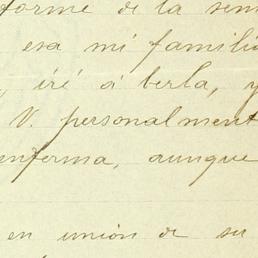 forme de la sem
esa mi familia
iré á berla, y
V. personalment
enferma, aunque
en unión de su